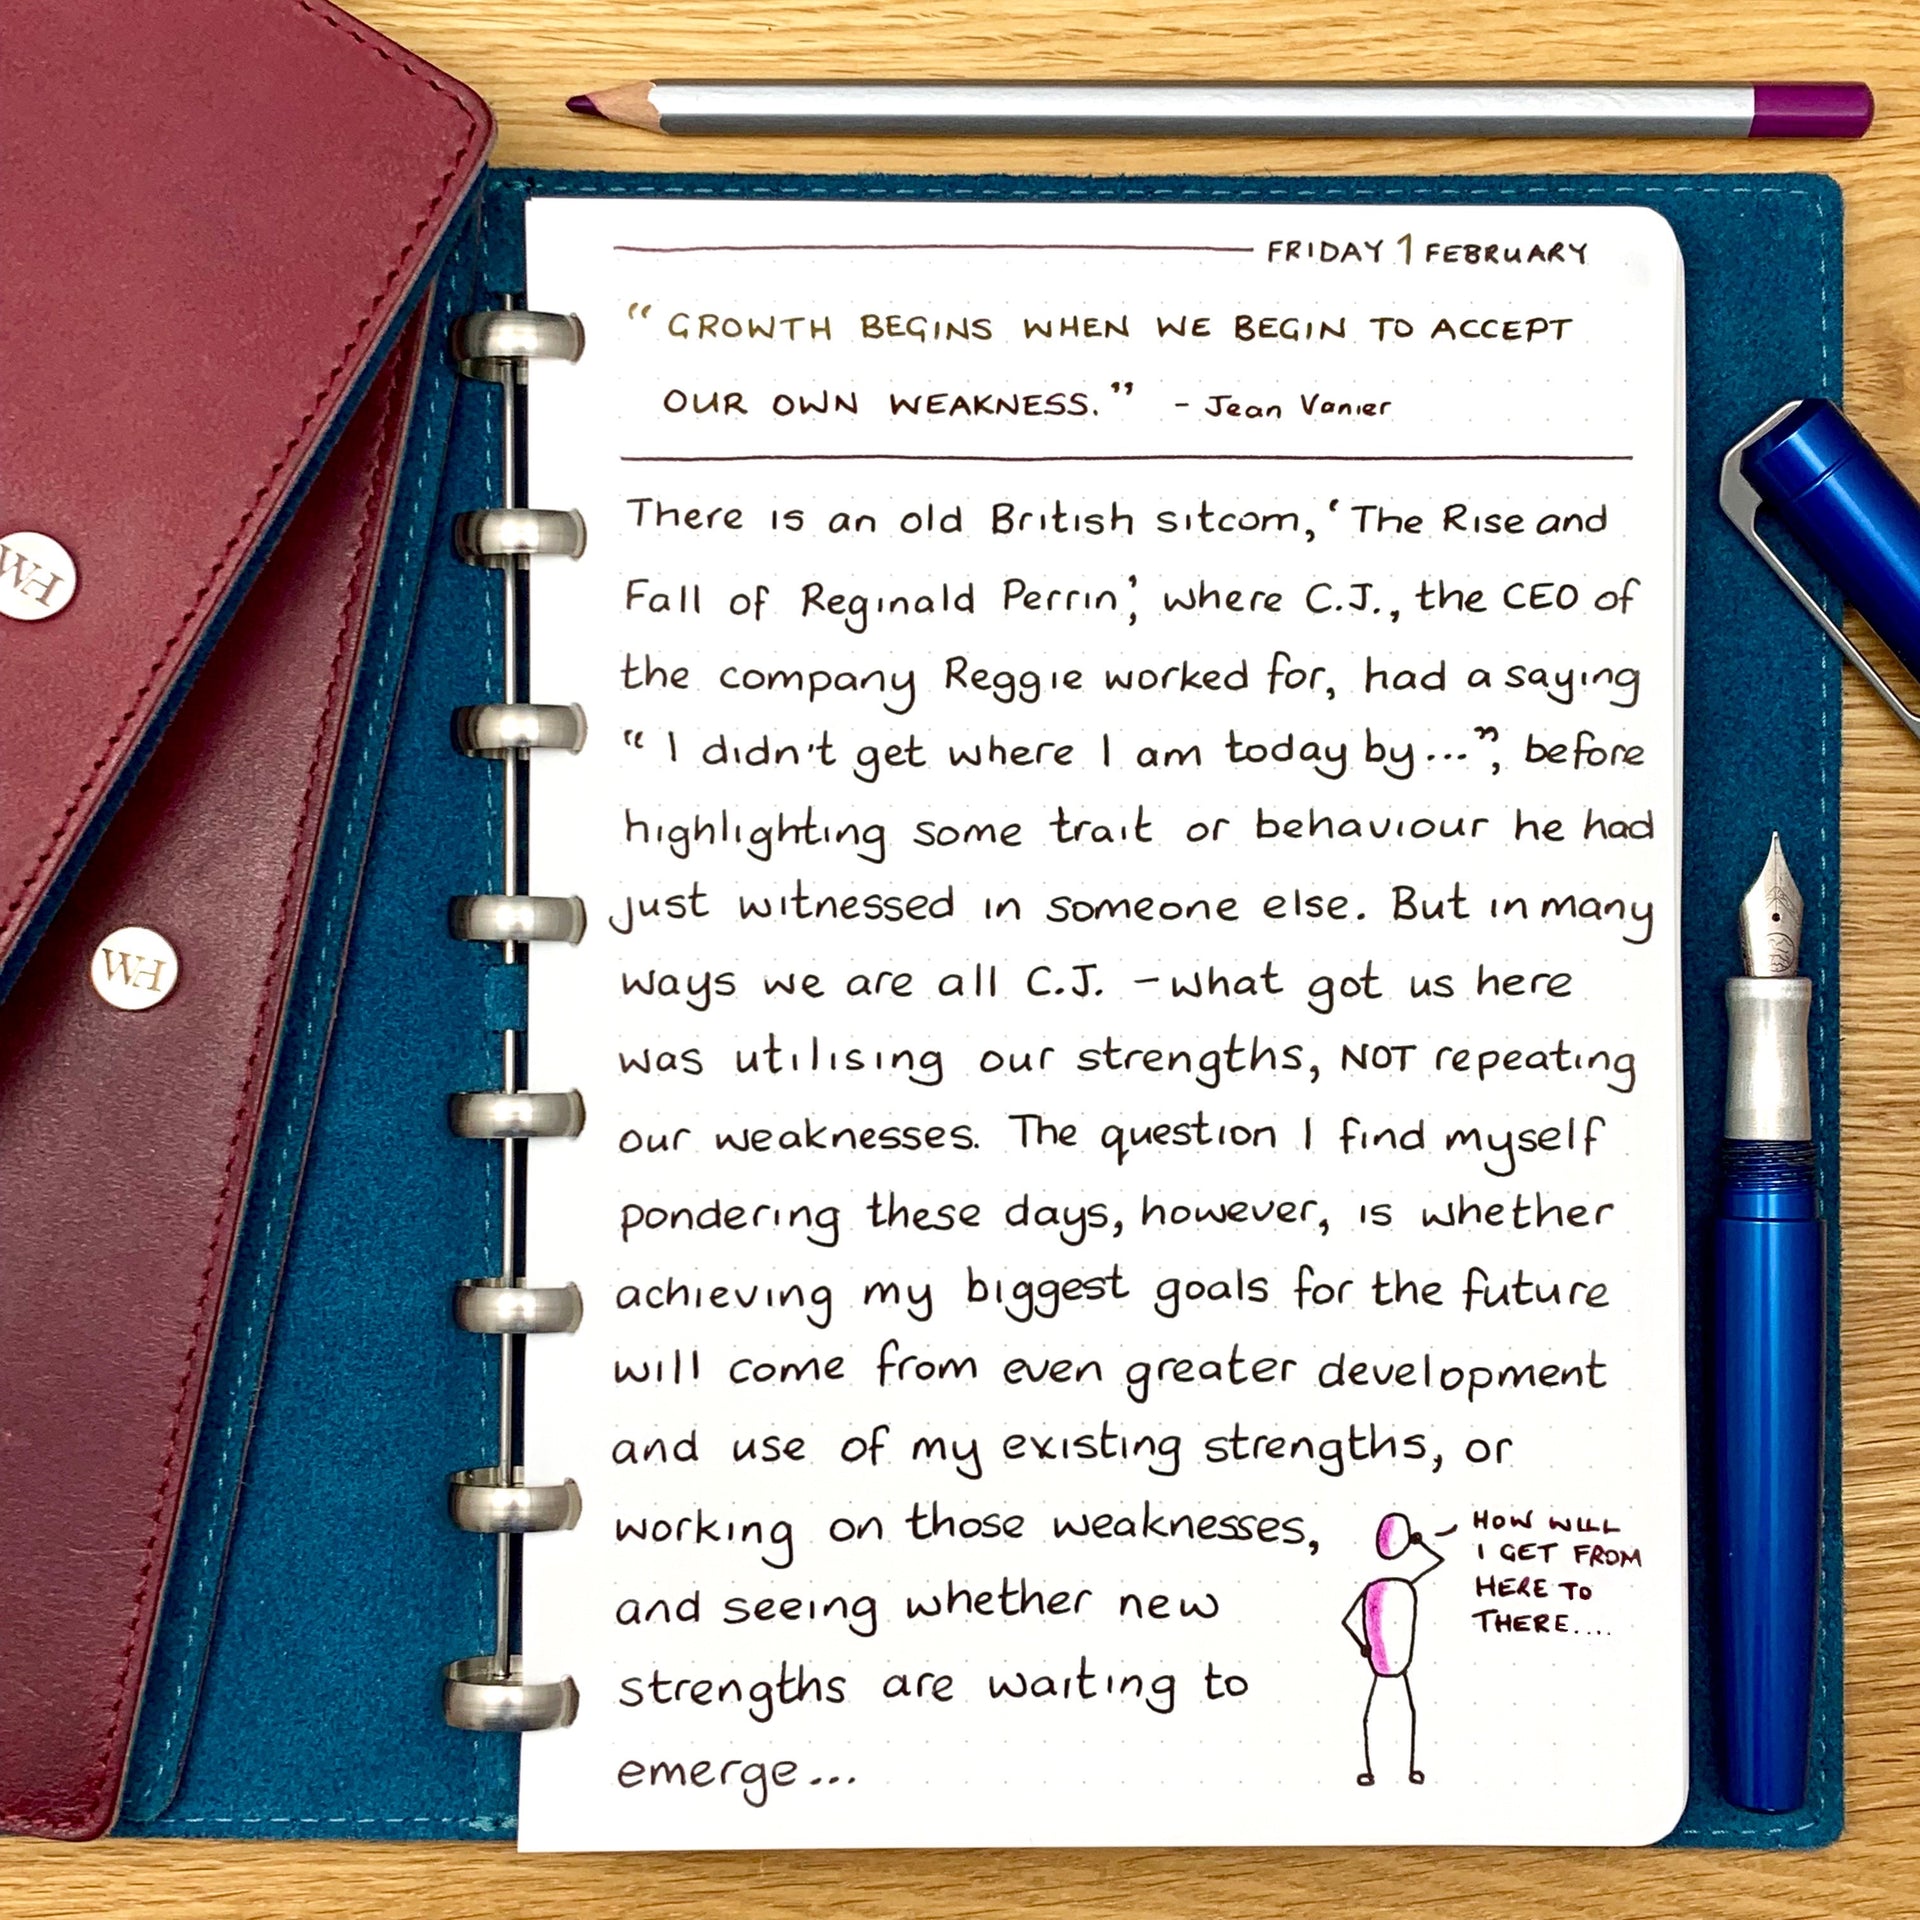 FRIDAY 1 FEBRUARY
“GROWTH BEGINS WHEN WE BEGIN TO ACCEPT
OUR OWN WEAKNESS.” - Jean Vanier
There is an old British sitcom, ‘The Rise and
Fall of Reginald Perrin’, where C.J., the CEO of
the company Reggie worked for, had a saying
“I didn't get where I am today by...”, before
highlighting some trait or behaviour he had
just witnessed in someone else. But in many
ways we are all C.J. - what got us here
was utilising our strengths, NOT repeating
our weaknesses. The question I find myself
pondering these days, however, is whether
achieving my biggest goals for the future
will come from even greater development
and use of my existing strengths, or
working on those weaknesses,
and seeing whether new
strengths are waiting to
emerge...
HOW WILL
I GET FROM
HERE TO
THERE....
WH
WH